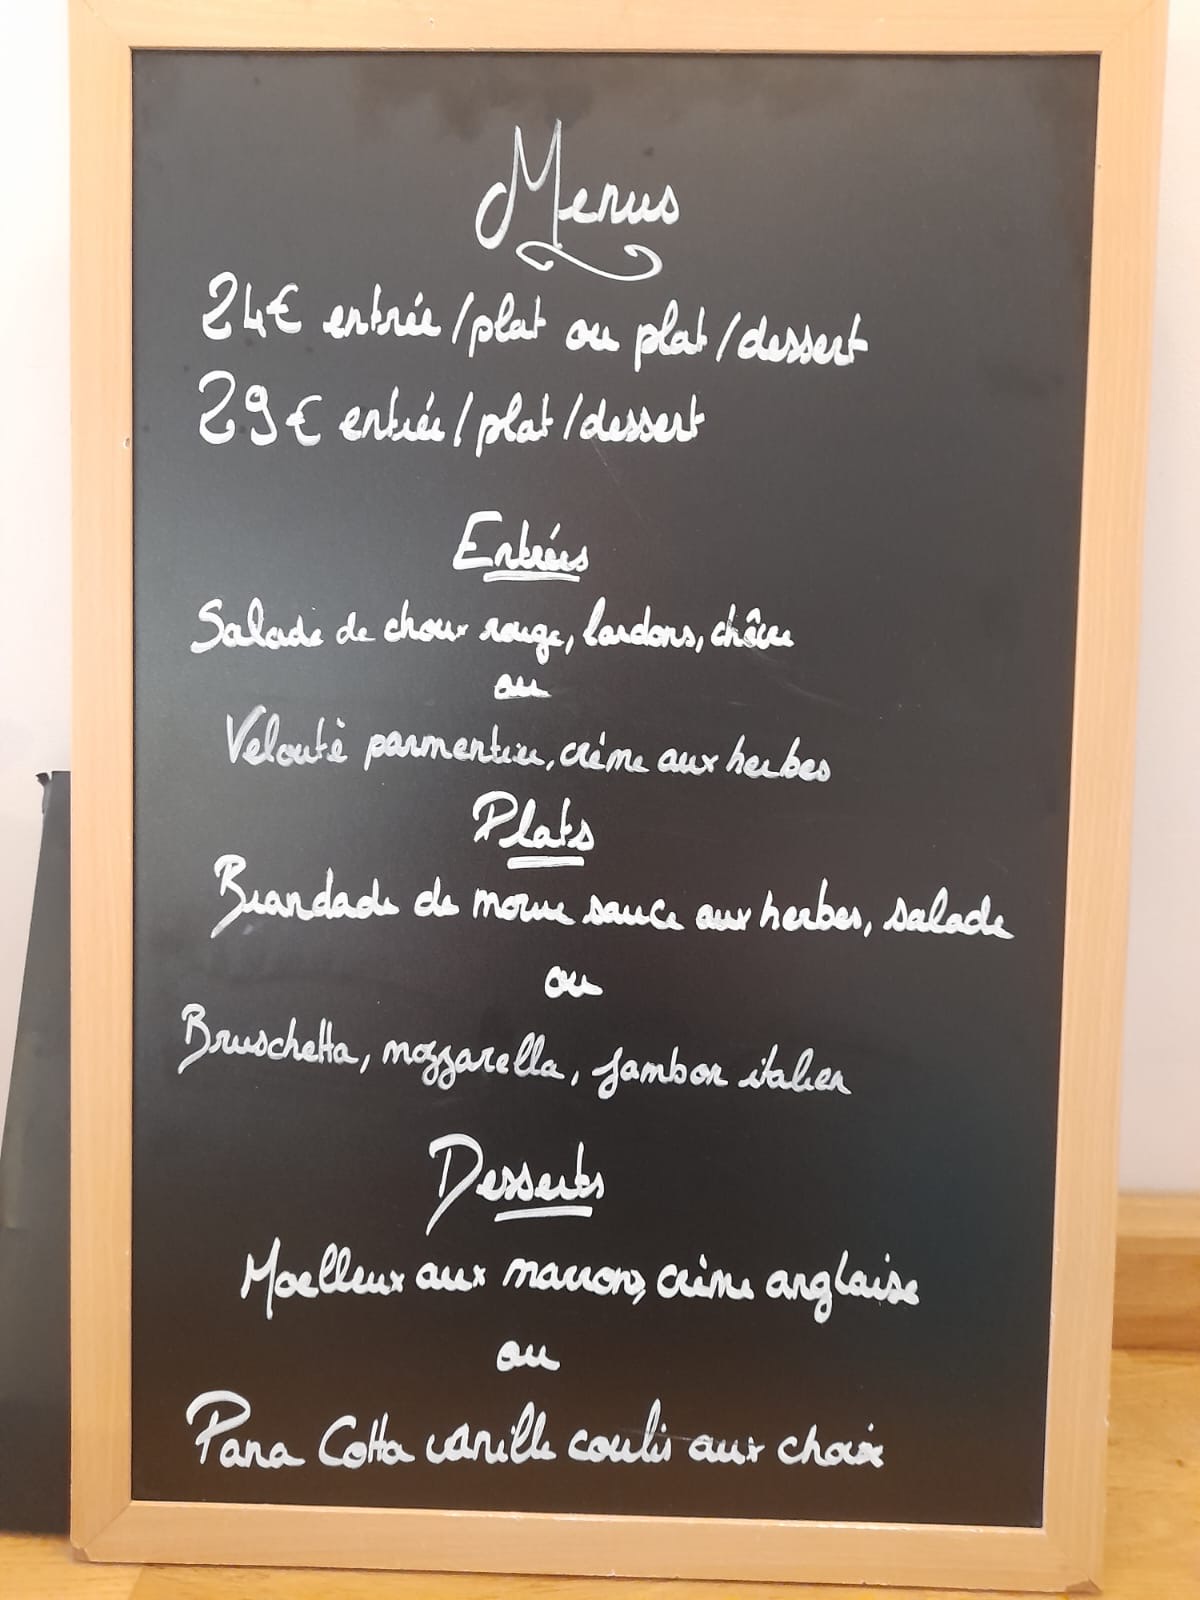 Menus
24€ entrée/plat ou plat/dessert
29€ entrée/plat/dessert
Entrées
Salade de choux rouge, lardons, chêvre
ou
Veloutè parmentier, créme aux herbes
Plats
Brandade de morue sauce aux herbes, salade
ou
Bruschetta, mozzarella, jambon italien
Desserts
Moelleux aux marrons, crème anglaise
ou
Pana Cotta vanille coulis aux choix